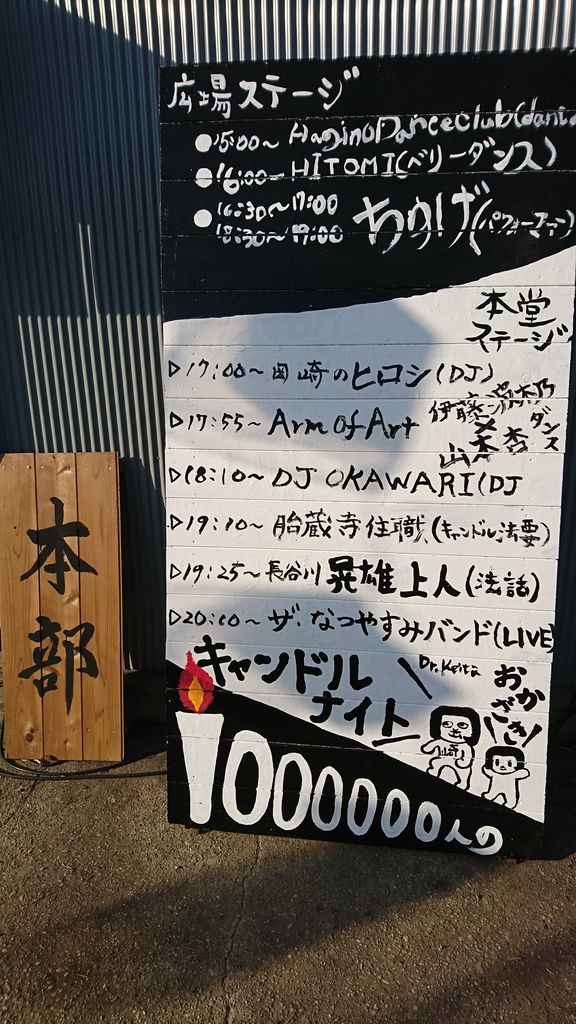 広場ステージ
●15:00～ Hagino Dance club(dance
●16:00～ HITOMI(ベリーダンス)
●16:30～17:00
18:30～19:00
ちゅげ(パフォーマー)
本堂
ステージ
▷17:00～ 岡崎のヒロシ(DJ)
▷17:55～ Arm of Art
伊藤
×
山本
ダンス
▷18:10～ DJ OKAWARI(DJ
▷19:10～ 胎蔵寺住職(キャンドル法要)
▷19:25～ 長谷川 晃雄上人(法話)
▷20:00～ ザ・なつやすみバンド(LIVE)
キャンドル
ナイト
Dr.Keita
おか
ざき!
崎
1000000人の
本部